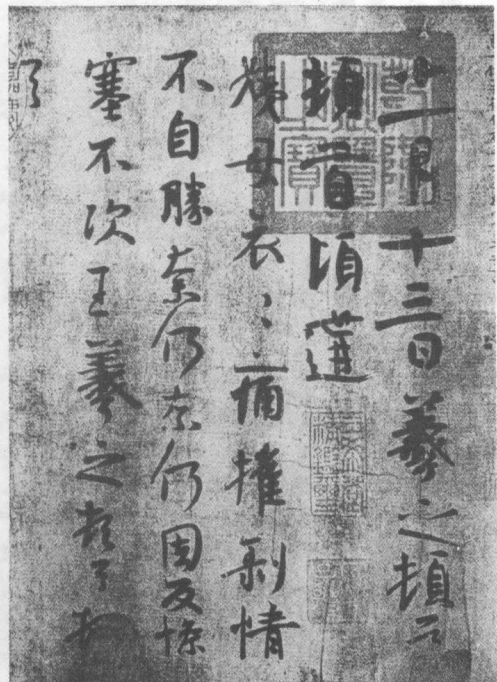 十一月十三日羲之頓首
頓首頃遘
姨母哀〻痛摧剝情
不自勝奈何奈何因反慘
塞不次王羲之頓首頓
首
乾隆
御覽
之寶